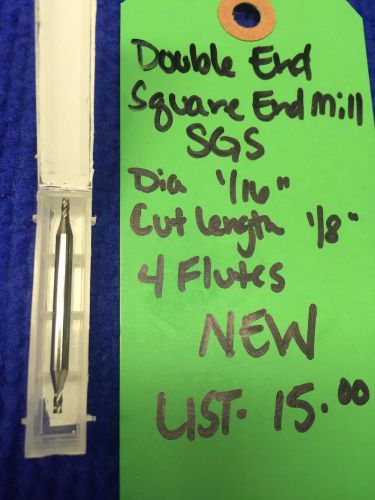 Double End
Square End Mill
SGS
Dia 1/16"
Cut Length 1/8"
4 Flutes
NEW
LIST. 15.00